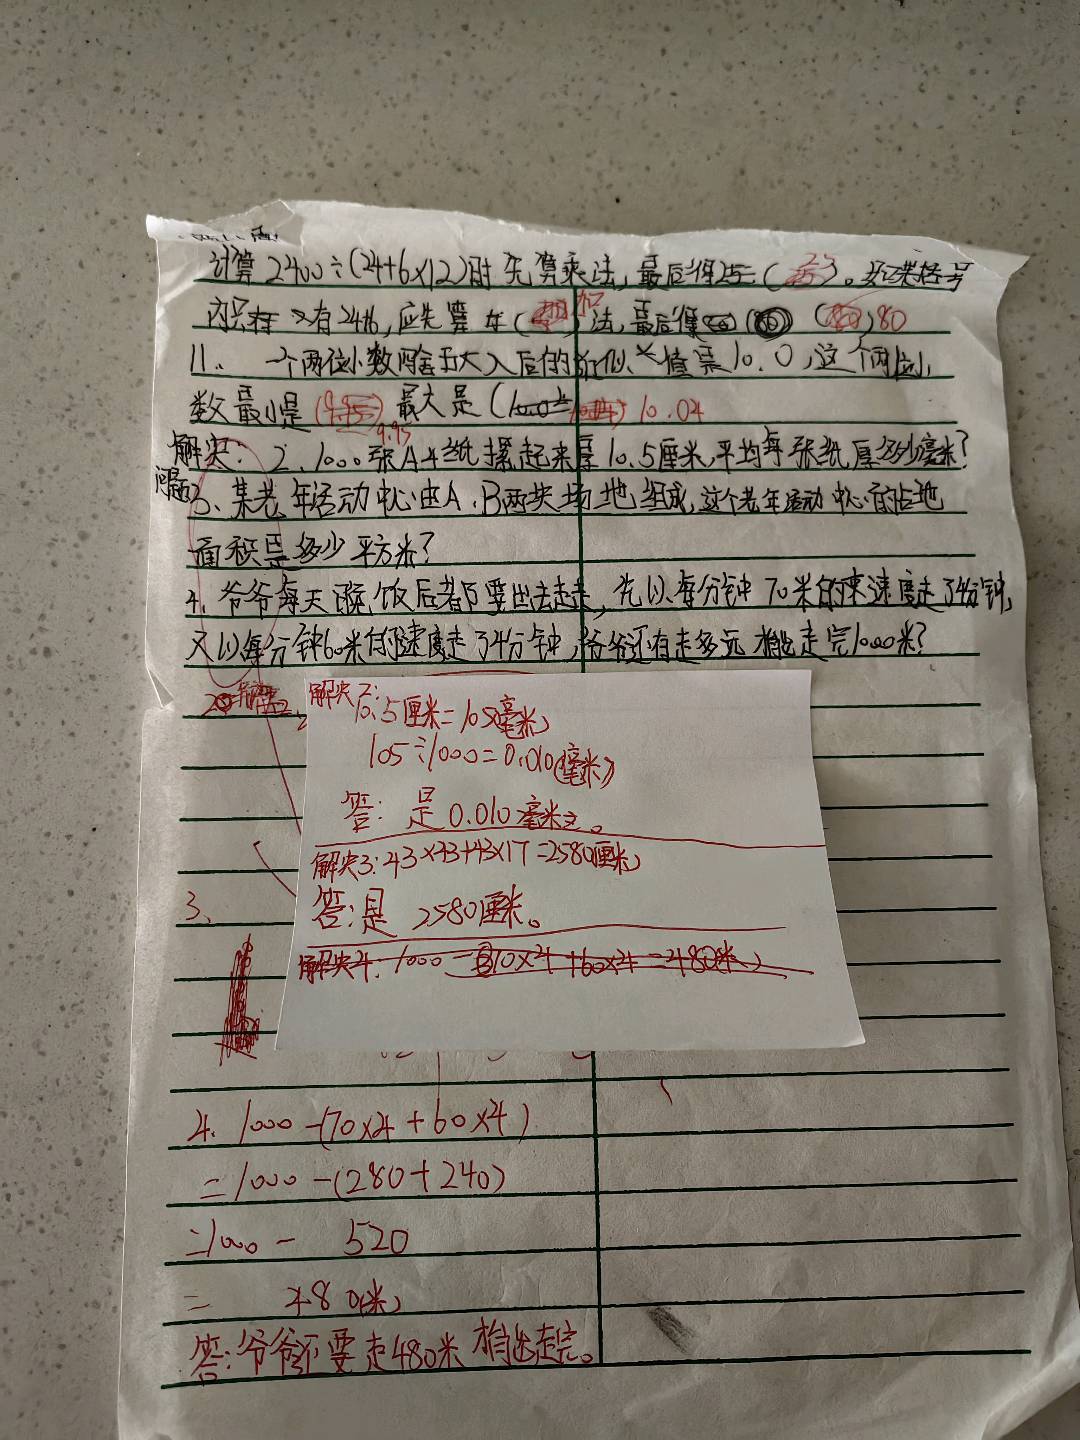 计算2400÷(24+6×12)时先算乘法,最后得25=( )。如果括号
内只有24+6,应先算 ( )加法,最后得 ( )80
11、一个两位小数四舍五入后的近似值是10.0,这个两位小
数最小是(9.95) 9.95 最大是( ) 10.04
解决问题
:2、1000张A4纸摞起来厚10.5厘米,平均每张纸厚多少毫米?
3、某老年活动中心由A、B两块场地组成,这个老年活动中心的占地
面积是多少平方米?
4、爷爷每天晚饭后都要出去走走,先以每分钟70米的速度走了4分钟,
又以每分钟60米的速度走了4分钟,爷爷还有走多远 走完1000米?
解决2:
10.5厘米=105毫米
105÷1000=0.010(毫米)
答:是0.010毫米。
解决3:43×43+43×17=2580(厘米)
答:是 2580厘米。
解决4:1000- 70×4+60×4=480(米)
3、
4. 1000-(70×4+60×4)
=1000-(280+240)
=1000- 520
= 480(米)
答:爷爷还要走480米 走完。